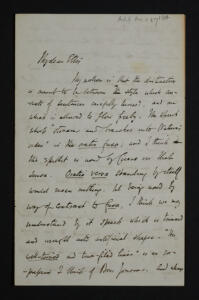 My dear Ellis
My notion is that the distinction
is meant to be between the style which con-
sists of sentences carefully turned, and one
which is allowed to flow freely. The
is the oratio fusa, and I think
the epithet is used by Cicero in that
sense. Oratio versa standing by itself
would mean nothing, but being used by
way of contrast to fusa, I think we may
understand by it speech which is turned
and wrought into artificial shapes. "The
well-turned and true-filed lines" is an ex-
pression I think of Ben Jonson. And